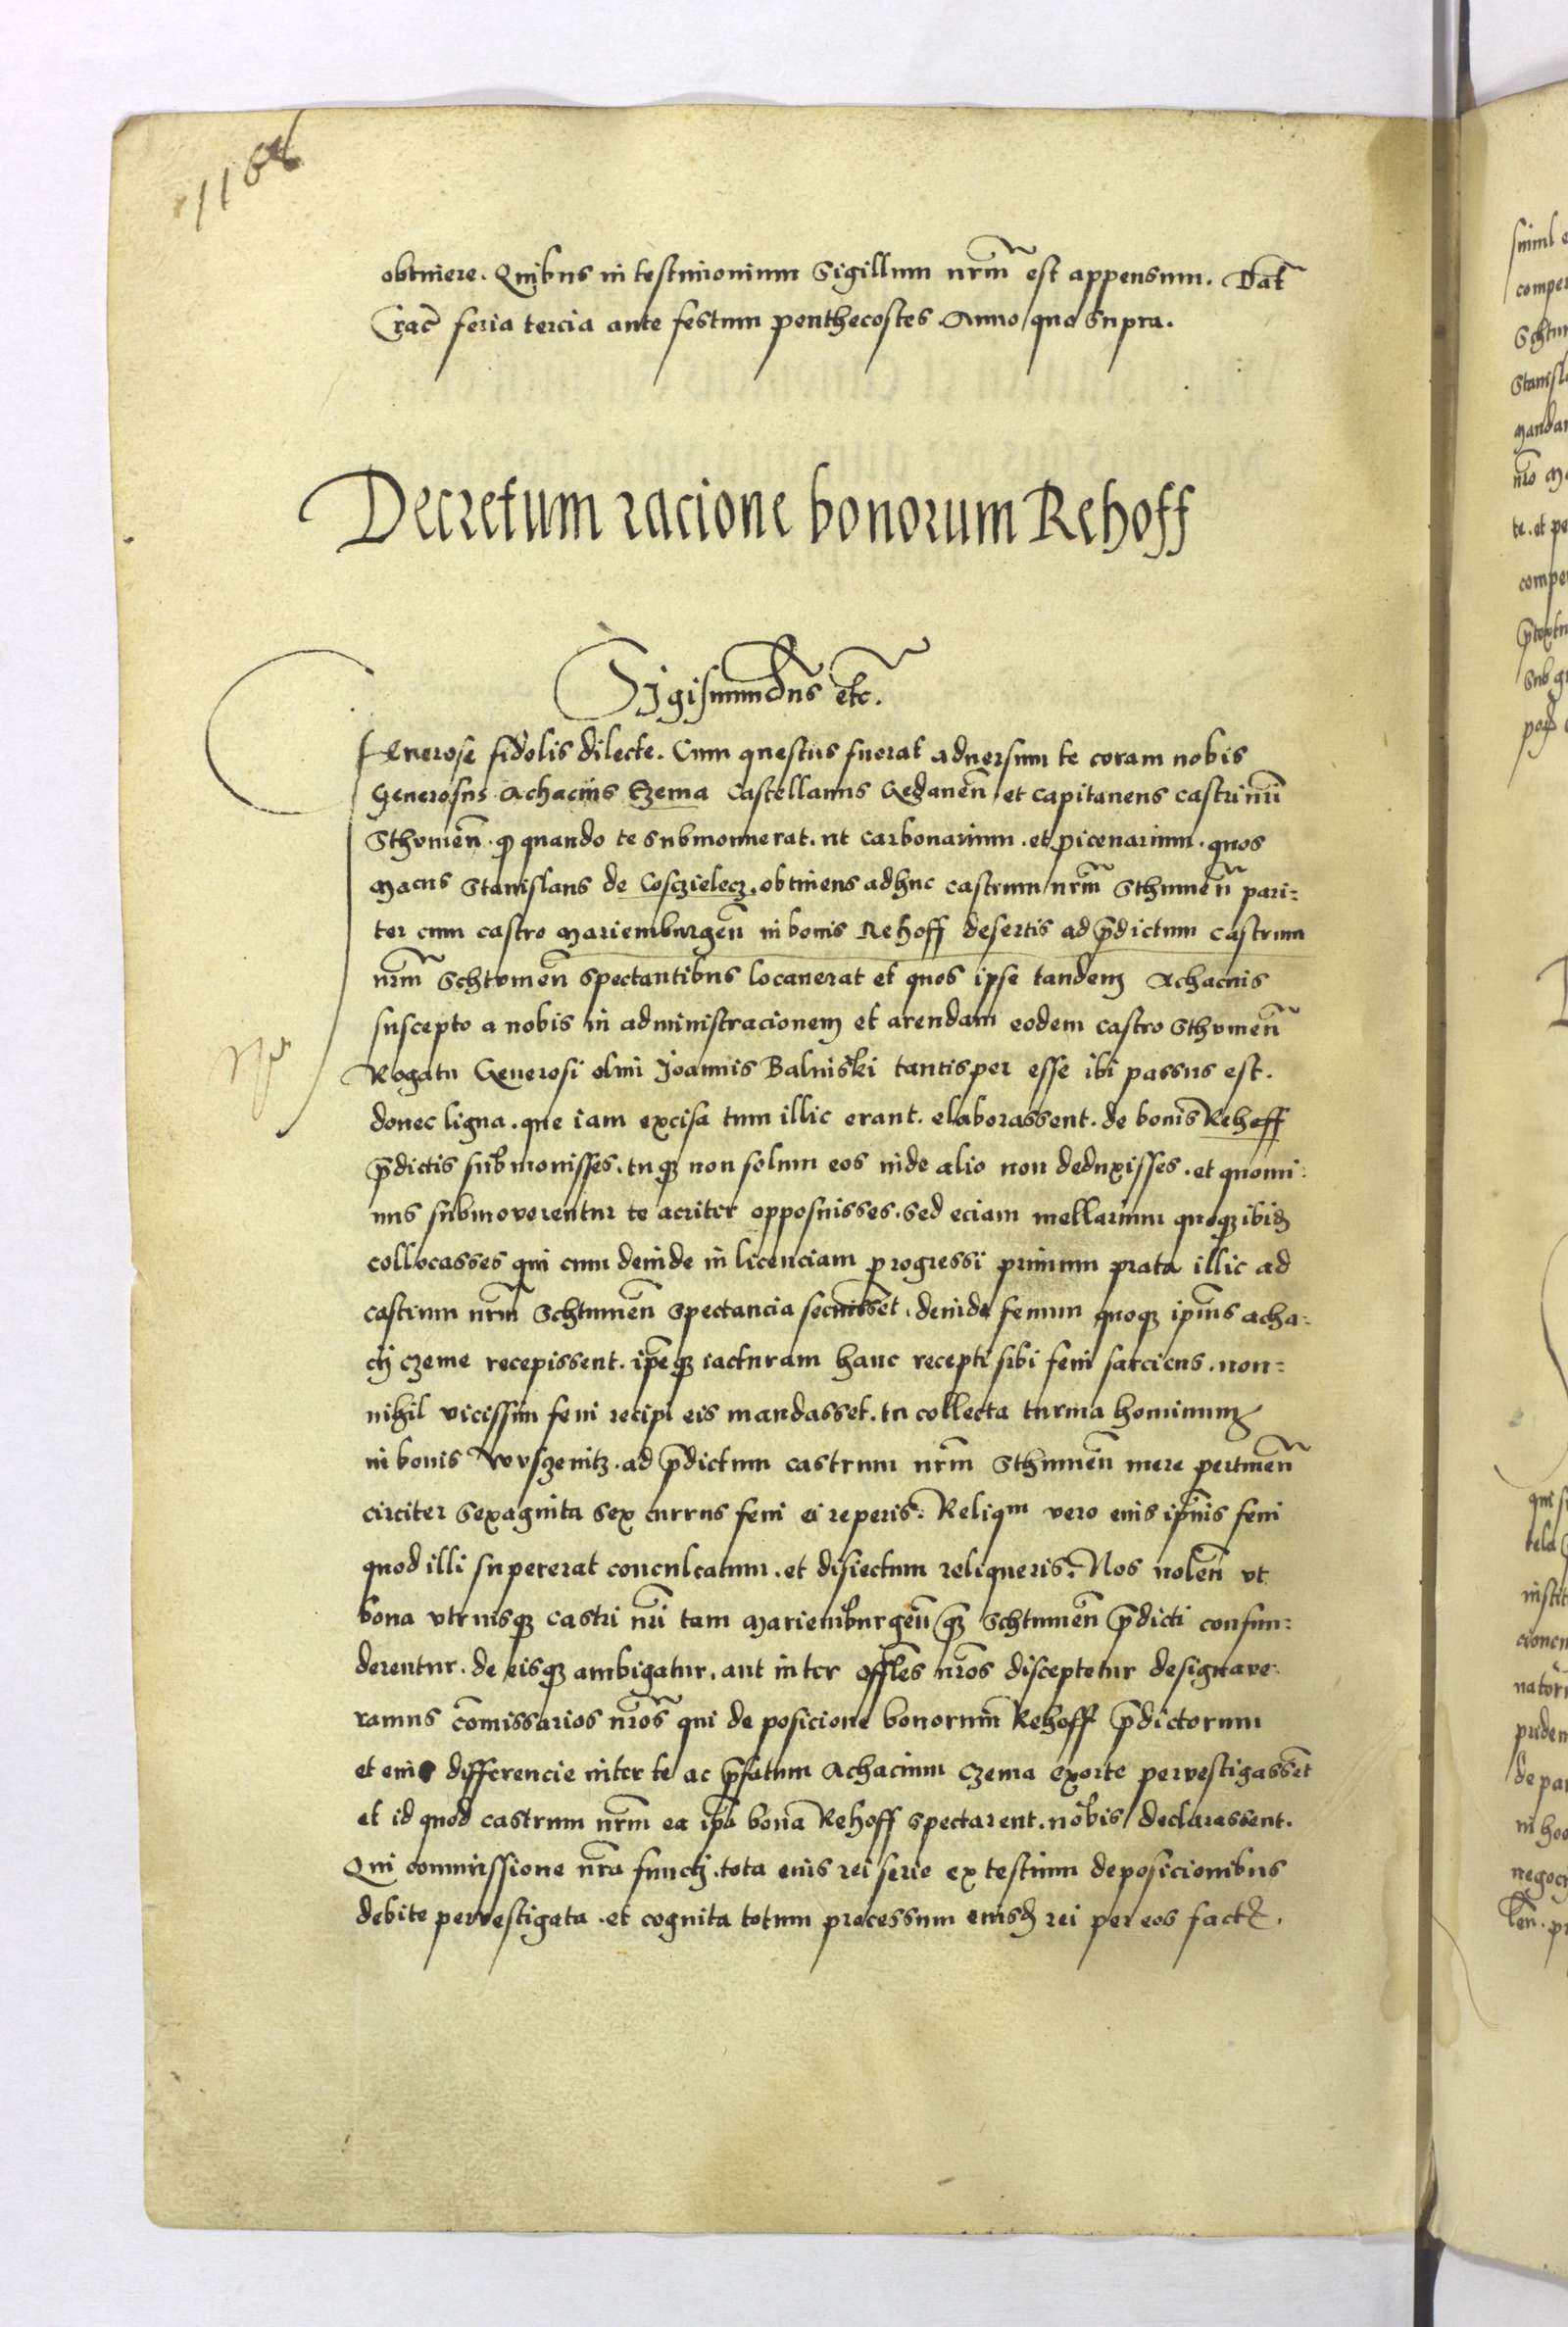 1168
obtinere. Quibus in testimonium Sigillum nrm̃ est appensum. Dat̃
Crac̃ feria tercia ante festum penthecostes Anno quo supra.
Decretum racione bonorum Rehoff
Sigismundus etc̃.
Generose fidelis dilecte. Cum questus fuerat adversum te coram nobis
Generosus Achacius Czema Castellanus Gedaneñ et capitaneus castri nr̃i
Sthvmeñ. qp quando te submonuerat. ut carbonarium. et picenarium. quos
Macus Stanislaus de Cosczielecz. obtinens adhuc castrum nrm̃ Sthumeñ pari-
ter cum castro Mariemburgeñ in bonis Rehoff desertis ad p̃dictum castrum
nrm̃ Schtvmeñ spectantibus locauerat et quos ipse tandem Achacius
suscepto a nobis in administracionem et arendam eodem castro Sthvmeñ
Rogatu Generosi olim Joannis Balinski tantisper esse ibi passus est.
donec ligna. que iam excisa tum illic erant. elaborassent. de bonis Rehoff
p̃dictis submonisses. tuqz non solum eos inde alio non deduxisses. et quomi-
nus submoverentur te acriter opposuisses. sed eciam mellarium quoqz ibid̃
collocasses qui cum deinde in licenciam progressi primum prata illic ad
castrum nrm̃ Schtumeñ spectancia secuissēt. deinde fenum quoqz ipius̃ acha-
cij czeme recepissent. ip̃eqz iacturam hanc recepti sibi feni sarciens. non-
nihil vicissim feni recipi eis mandasset. tu collecta turma hominum
in bonis Wvsczenitz. ad p̃dictum castrum nrm̃ Sthumeñ mere pertineñ
circiter sexaginta sex currus feni ei reperis. Reliqm vero eius ip̃ius feni
quod illi supererat conculcatum. et disiectum reliqueris. Nos voleñ vt
bona vtriusqz castri nr̃i tam Mariemburgeñ qz Schtumeñ p̃dicti confun-
derentur. de eisqz ambigatur. aut inter offles̃ nr̃os disceptetur designave-
ramus com̃issarios nr̃os qui de posicione bonorum Rehoff p̃dictorum
et eius differencie inter te ac p̃fatum Achacium Czema exorte pervestigassēt
et id quod castrum nrm̃ ea ip̃a bona Rehoff spectarent. nobis declarassent.
Qui commissione nr̃a functj. tota eius rei serie ex testium deposicionibus
debite pervestigata. et cognita totum processum eiusd̃ rei per eos fact̃.